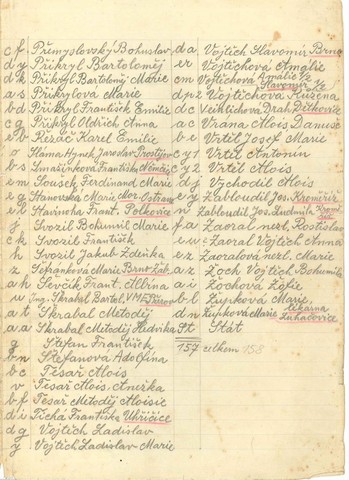 c f Přemyslovský Bohuslav
d y Přikryl Bartoloměj
d k Přikryl Bartoloměj Marie
a s Přikrylová Marie
b d Přikryl František Emilie
c g Přikryl Oldřich Anna
e b Řezáč Karel Emilie
o Sláma Hynek Jaroslav Prostějov
b s Františka Němčice
e m Soušek Ferdinand Marie
e g Stanovská Marie Mor. Ostrava
e l Stavinoha Frant. Polkovice
j Svozil Bohumil Marie
c k Svozil František
h Svozil Jakub Zdenka
z Marie Brno Žab.
a k Ševčík Frant. Albína
u Ing. Skrabal Bartol. VM
a t Skrabal Metoděj
a a Skrabal Metoděj Hedvika
g Štefan František
b n Štefanová Adolfina
b c Tesař Alois
v Tesař Alois Anežka
b f Tesař Metoděj Aloisie
d i Tichá Františka Uhřičice
d g Vojtěch Ladislav
y Vojtěch Ladislav Marie
d a Vojtěch Slavomír Brno
e r Vojtěchová Amálie
c m Vojtěchová Amálie 1/2 Slavomír 1/2
d p z Vojtěchová Růžena
d c Drah. Dětkovice
a c Vrána Alois Danuše
b e Vrtěl Josef Marie
c y 1 Vrtěl Antonín
c y 2 Vrtěl Alois
d j Vychodil Alois
d x Zabloudil Jos. Kroměříž
n Zabloudil Jos. Ludmila
f a Zaoral nezl. Rostislav
e w Zaoral Vojtěch Anna
e z Zaoralová nezl. Marie
a x Zoch Vojtěch Bohumila
a i Žochová Žofie
b l Župková Marie
d n Župková Marie lékárna Luhačovice
St Stát
157 celkem 158